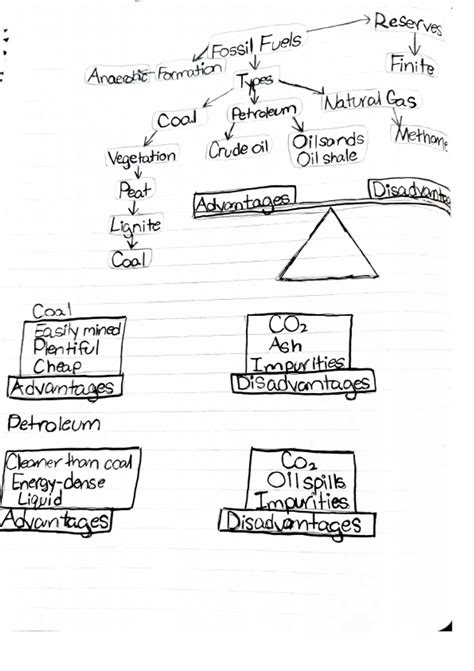 Reserves
Fossil Fuels
Finite
Anaerobic Formation
Types
Natural Gas
Coal
Petroleum
Methane
Vegetation
Crude oil
Oilsands
Oil shale
Peat
Advantages
Disadvanta
Lignite
Coal
Coal
Easily mined
Plentiful
Cheap
Advantages
CO2
Ash
Impurities
Disadvantages
Petroleum
Cleaner than coal
Energy-dense
Liquid
Advantages
CO2
Oil spills
Impurities
Disadvantages